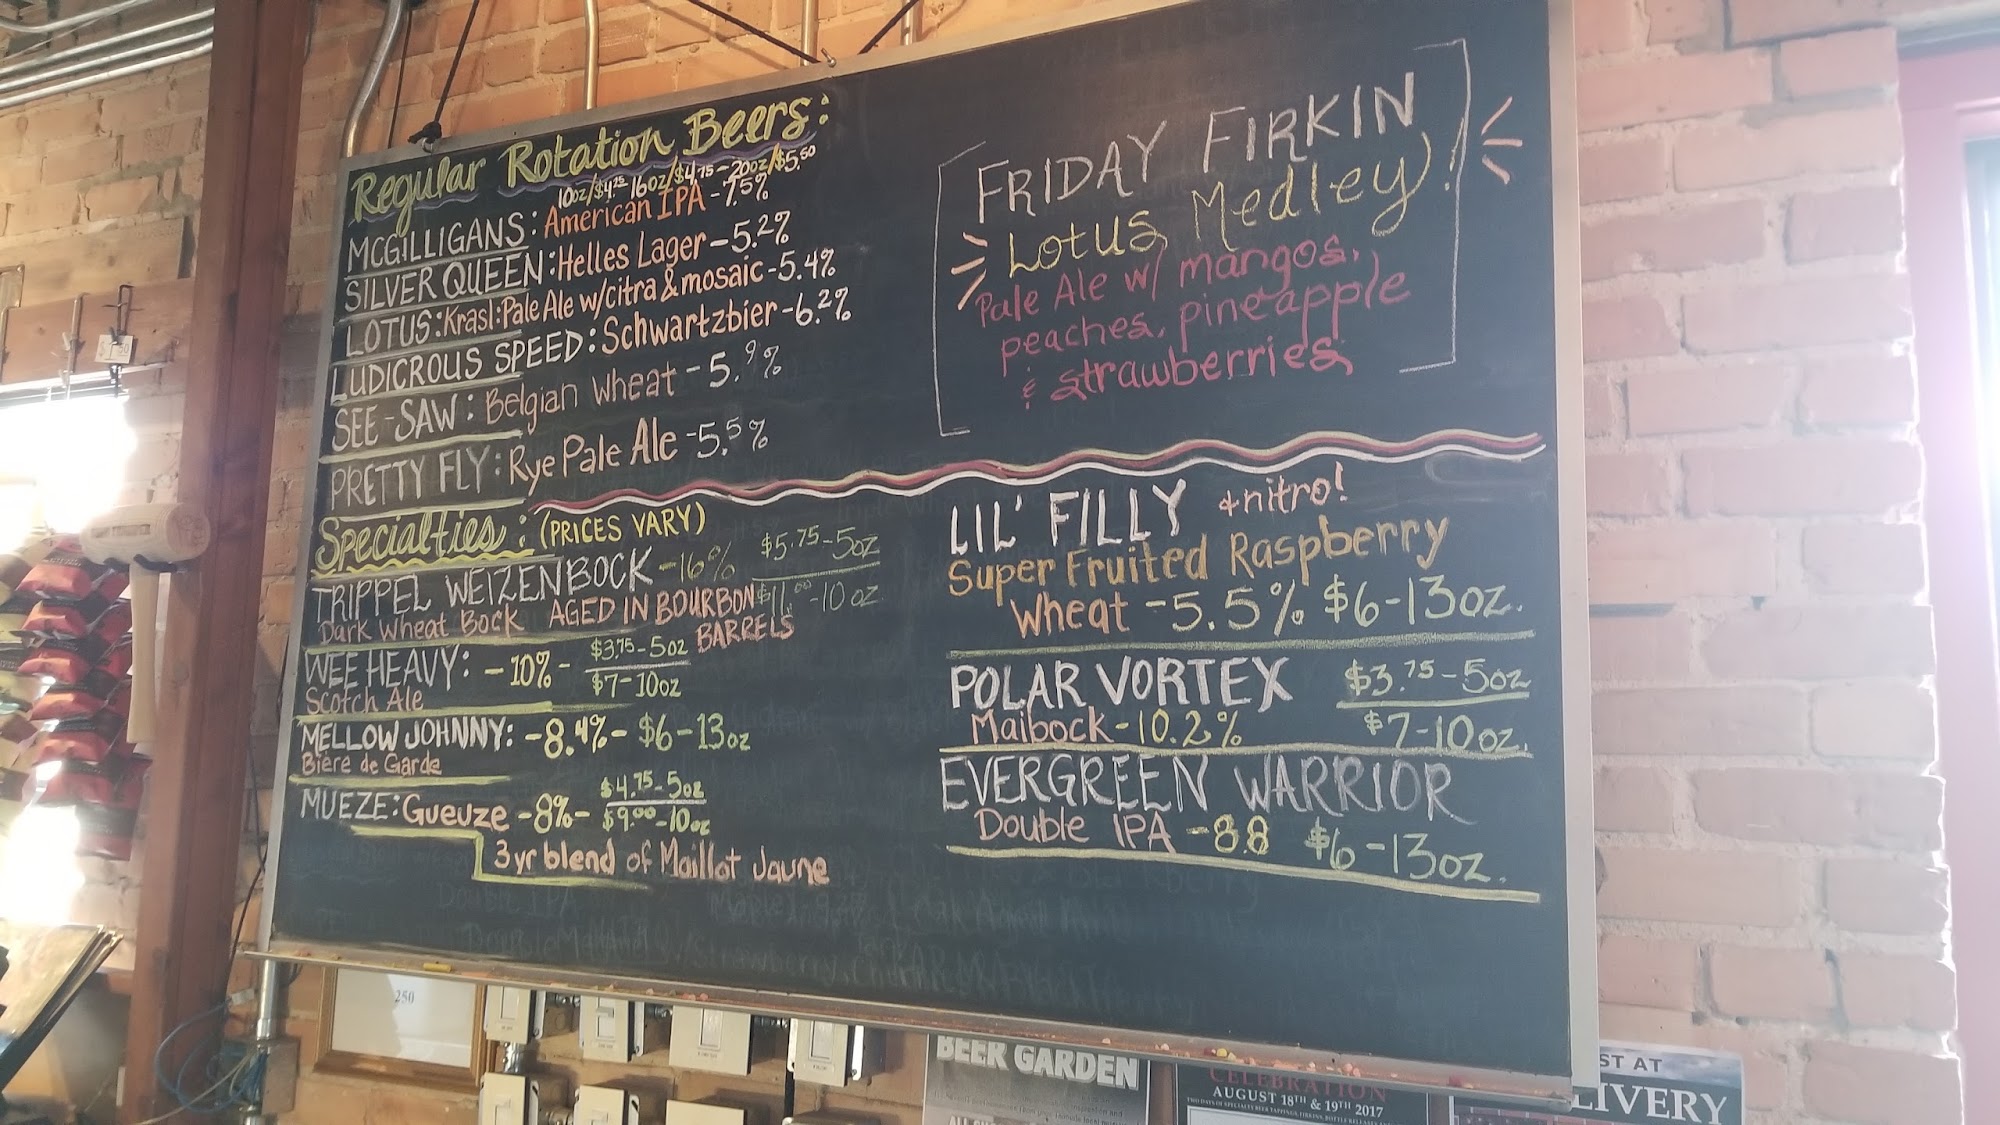 Regular Rotation Beers:
10oz/$4.25 16oz/$4.75 - 20oz/$5.50
MCGILLIGANS: American IPA - 7.5%
SILVER QUEEN: Helles Lager - 5.2%
LOTUS: Krasl: Pale Ale w/citra & mosaic - 5.4%
LUDICROUS SPEED: Schwartzbier - 6.2%
SEE-SAW: Belgian Wheat - 5.9%
PRETTY FLY: Rye Pale Ale - 5.5%
Specialties: (PRICES VARY)
TRIPPEL WEIZENBOCK - 16% $5.75 - 5oz
Dark Wheat Bock AGED IN BOURBON $11.00 - 10oz
BARRELS
WEE HEAVY: - 10% - $3.75 - 5oz
Scotch Ale $7 - 10oz
MELLOW JOHNNY: - 8.4% - $6 - 13oz
Bière de Garde
MUEZE: Gueuze - 8% - $4.75 - 5oz
$9.00 - 10oz
3yr blend of Maillot Jaune
FRIDAY FIRKIN
Lotus Medley!
Pale Ale w/ mangos,
peaches, pineapple
& strawberries
LIL' FILLY +nitro!
Super Fruited Raspberry
Wheat - 5.5% $6 - 13oz.
POLAR VORTEX $3.75 - 5oz
Maibock - 10.2% $7 - 10oz.
EVERGREEN WARRIOR
Double IPA - 8.8 $6 - 13oz.
250
BEER GARDEN
CELEBRATION
AUGUST 18TH & 19TH 2017
ST AT
LIVERY